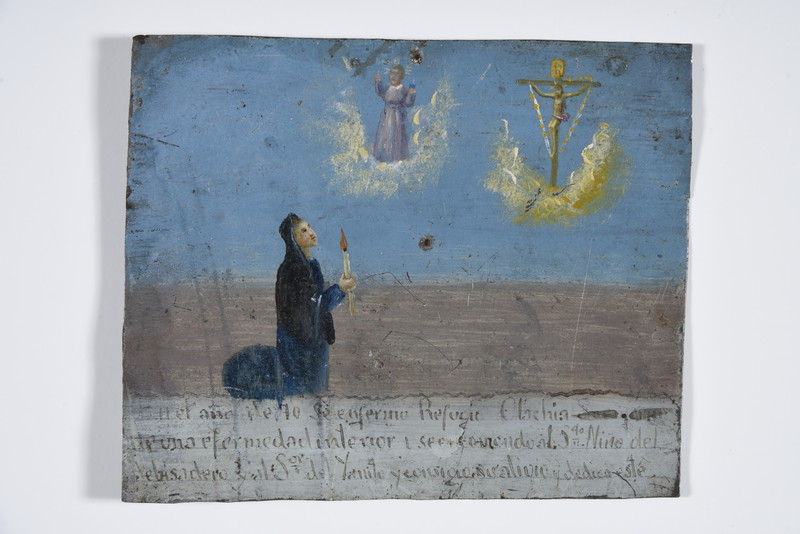 En el año de 10 Se enfermo Refugio
de una efermedad interior i se encomendo al Sto. Niño del
y al Sor. del y consiguio su alivio y dedica este